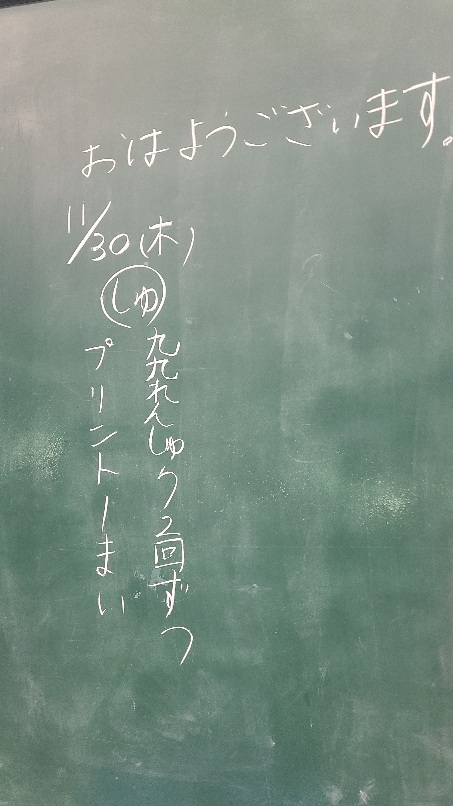 おはようございます。
11/30(木)
しゅ
九九れんしゅう2回ずつ
プリント1まい